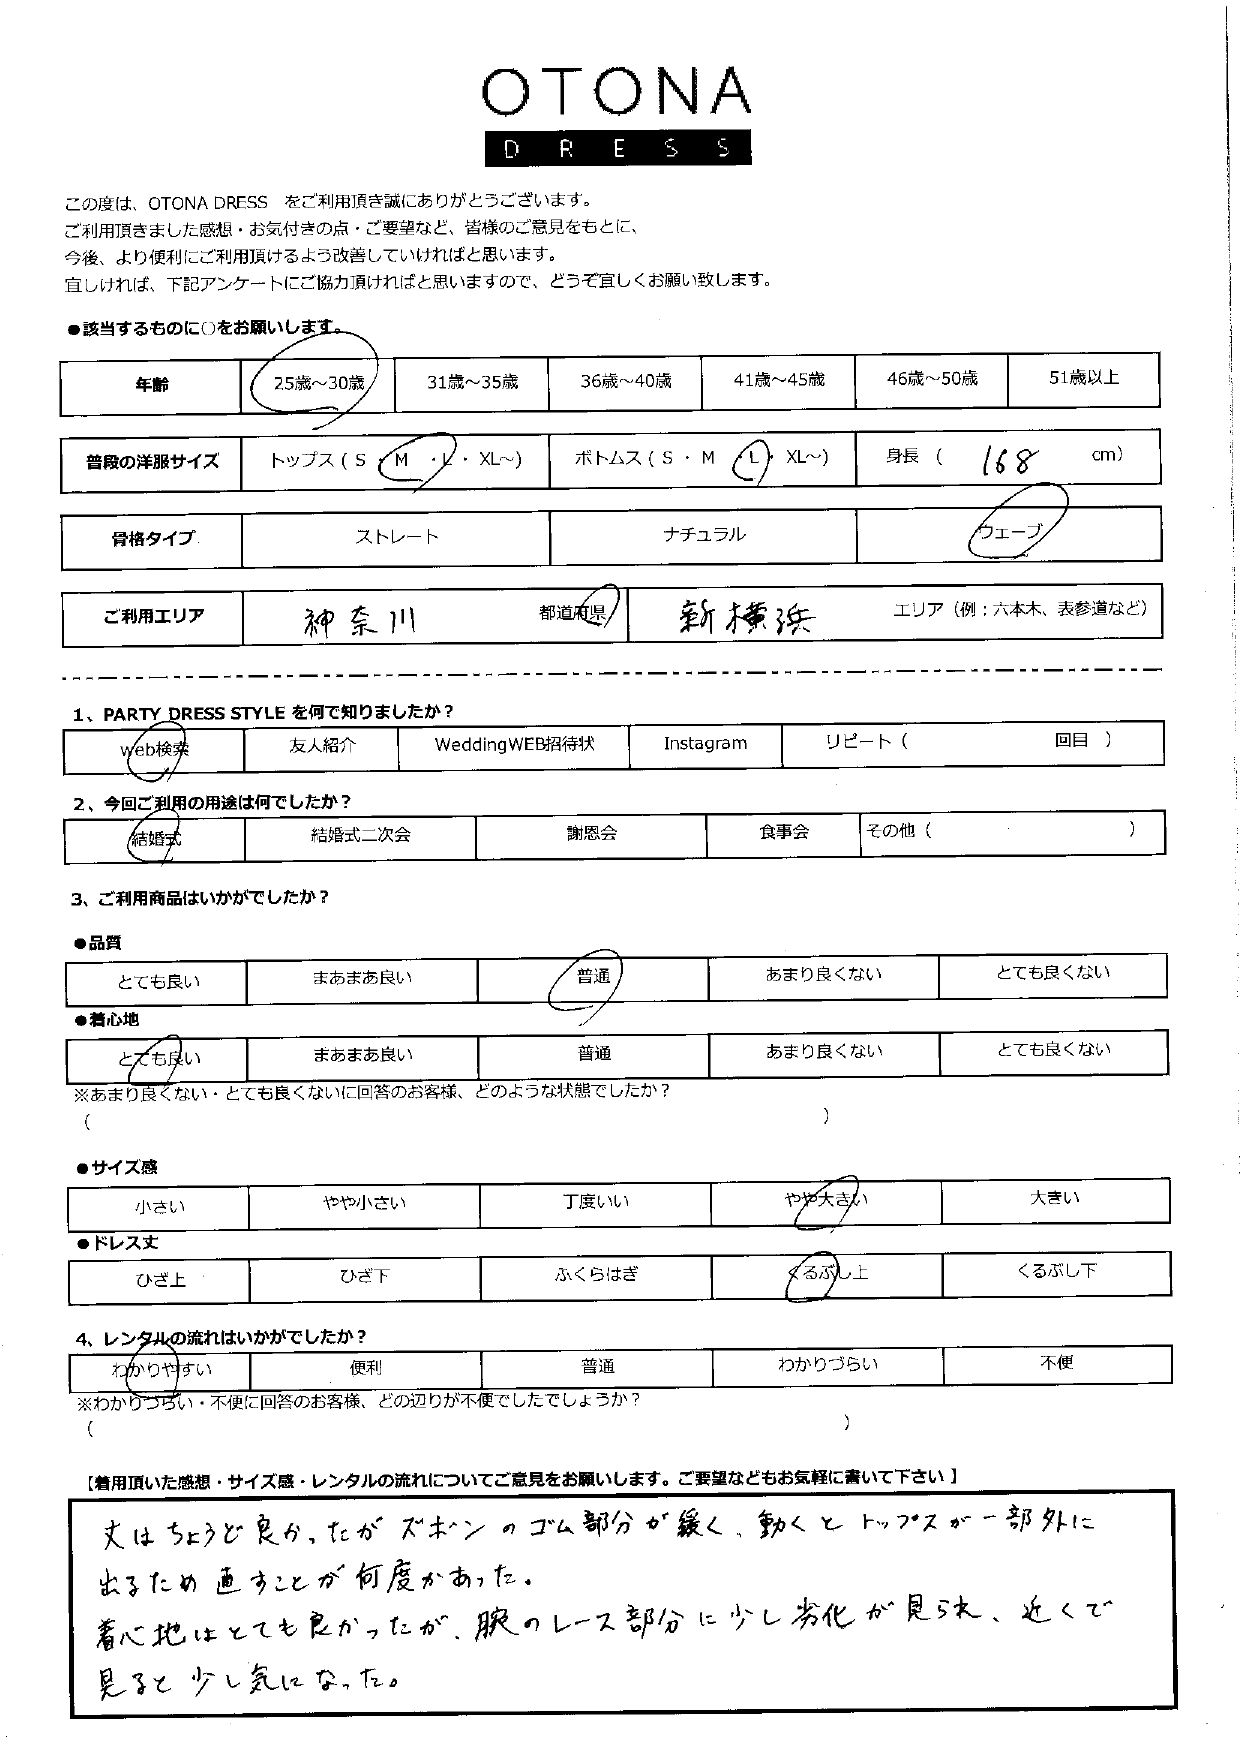 OTONA
DRESS
この度は、OTONA DRESS　をご利用頂き誠にありがとうございます。
ご利用頂きました感想・お気付きの点・ご要望など、皆様のご意見をもとに、
今後、より便利にご利用頂けるよう改善していければと思います。
宜しければ、下記アンケートにご協力頂ければと思いますので、どうぞ宜しくお願い致します。
●該当するものに○をお願いします。
年齢 25歳～30歳 31歳～35歳 36歳～40歳 41歳～45歳 46歳～50歳 51歳以上
普段の洋服サイズ トップス ( S ・ M ・ L ・ XL～) ボトムス ( S ・ M ・ L ・ XL～) 身長 ( 168 cm)
骨格タイプ ストレート ナチュラル ウェーブ
ご利用エリア 神奈川 都道府県 新横浜 エリア（例：六本木、表参道など）
1、PARTY DRESS STYLE を何で知りましたか？
web検索 友人紹介 WeddingWEB招待状 Instagram リピート ( 回目 )
2、今回ご利用の用途は何でしたか？
結婚式 結婚式二次会 謝恩会 食事会 その他 ( )
3、ご利用商品はいかがでしたか？
●品質
とても良い まあまあ良い 普通 あまり良くない とても良くない
●着心地
とても良い まあまあ良い 普通 あまり良くない とても良くない
※あまり良くない・とても良くないに回答のお客様、どのような状態でしたか？
( )
●サイズ感
小さい やや小さい 丁度いい やや大きい 大きい
●ドレス丈
ひざ上 ひざ下 ふくらはぎ くるぶし上 くるぶし下
4、レンタルの流れはいかがでしたか？
わかりやすい 便利 普通 わかりづらい 不便
※わかりづらい・不便に回答のお客様、どの辺りが不便でしたでしょうか？
( )
【着用頂いた感想・サイズ感・レンタルの流れについてご意見をお願いします。ご要望などもお気軽に書いて下さい】
丈はちょうど良かったがズボンのゴム部分が緩く、動くとトップスが一部外に
出るため直すことが何度かあった。
着心地はとても良かったが、腕のレース部分に少し劣化が見られ、近くで
見ると少し気になった。